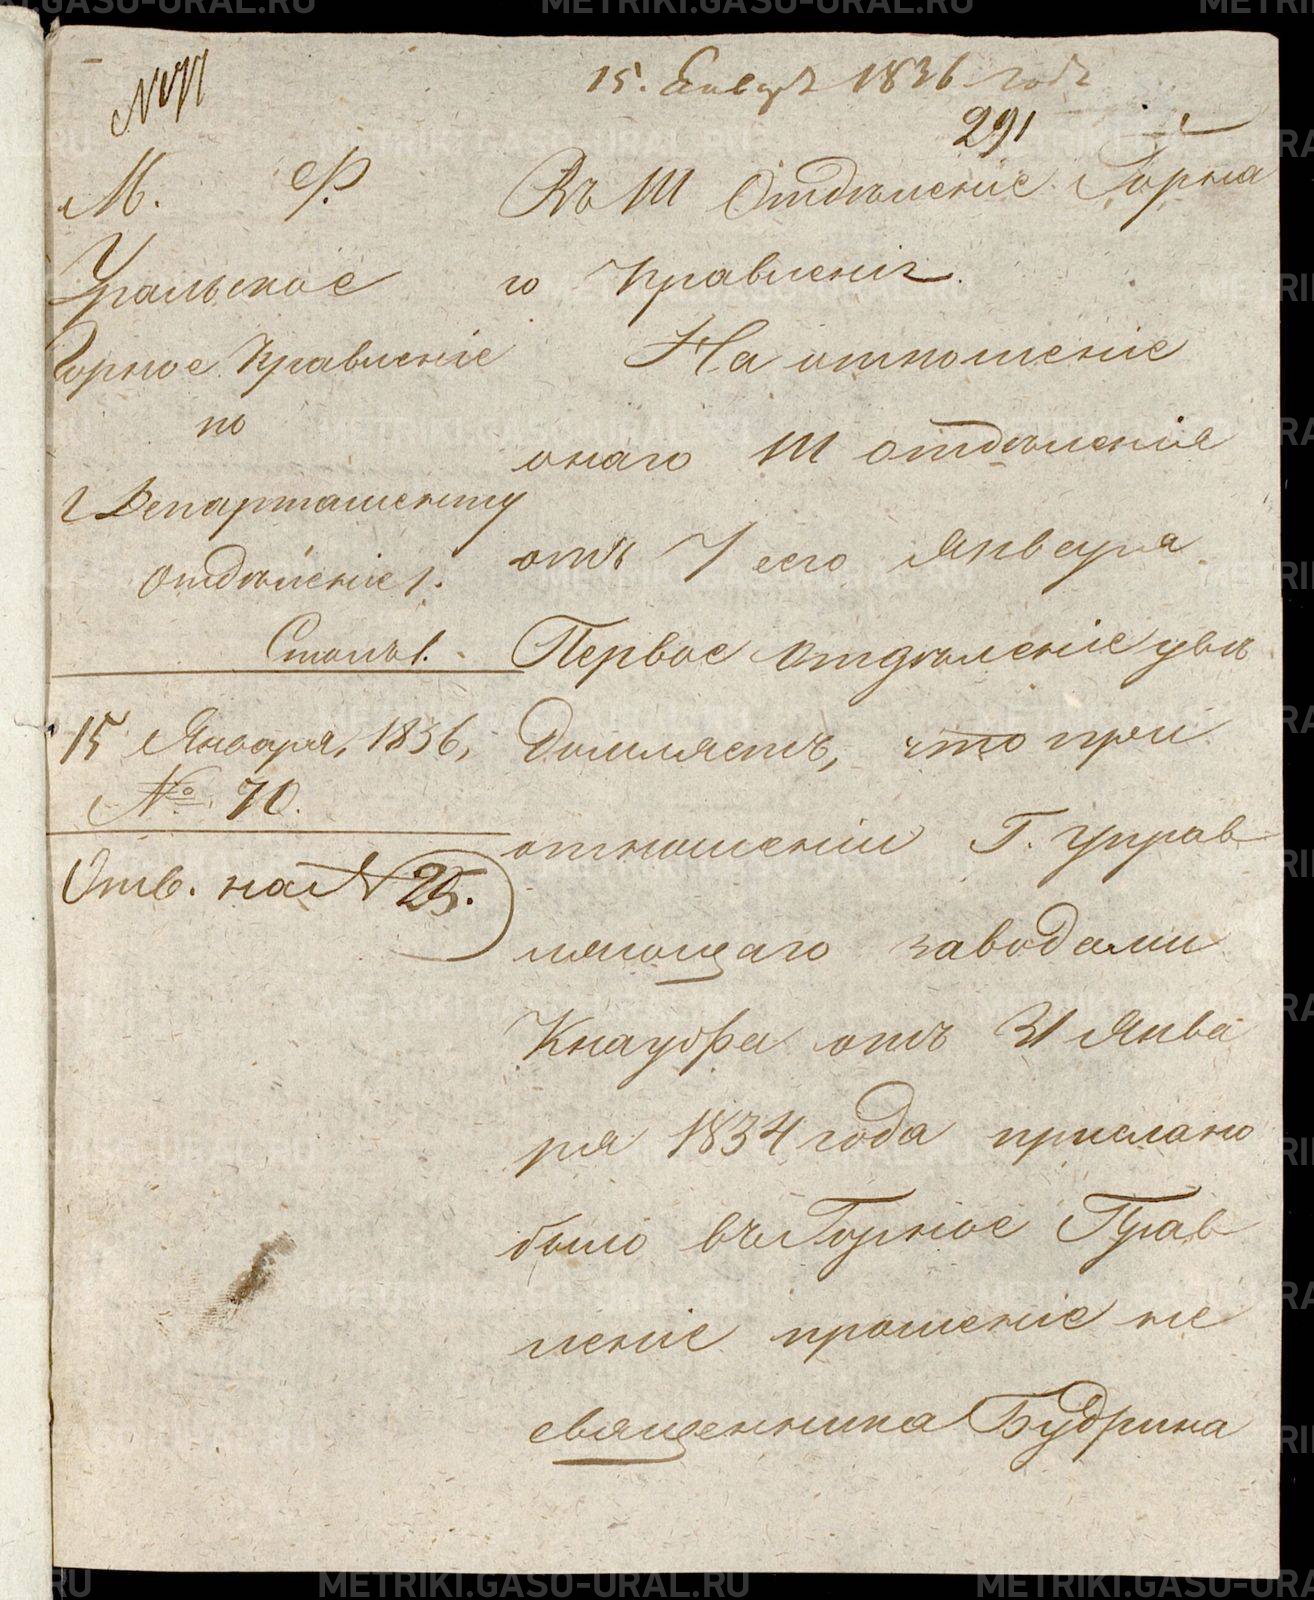 15. Январ 1836 года
291
М. Ф.
Уральское
Горное Правленіе
по
1 Департаменту
Отдѣленіе 1.
Столъ 1.
15 Января, 1836,
№ 70.
Отв. на № 25.
Въ III Отдѣленіе Горна
го Правленія.
На отношеніе
онаго III отдѣленія
отъ 7 сего Января
Первое отдѣленіе увѣ
домляетъ, что при
отношеніи Г. Управ
ляющаго заводами
Кнауфа отъ 31 Янва
ря 1834 года прислано
было въ Горное Прав
леніе прошеніе не
священника Будрина
METRIKI.GASO-URAL.RU